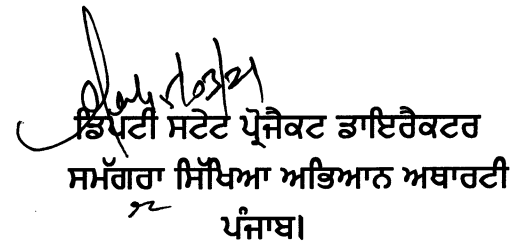 ਡਿਪਟੀ ਸਟੇਟ ਪ੍ਰੋਜੈਕਟ ਡਾਇਰੈਕਟਰ
ਸਮੱਗਰਾ ਸਿੱਖਿਆ ਅਭਿਆਨ ਅਥਾਰਟੀ
ਪੰਜਾਬ।